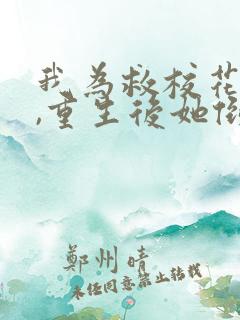 我為救校花
,重生後她
鄭州晴
未经同意禁止转载